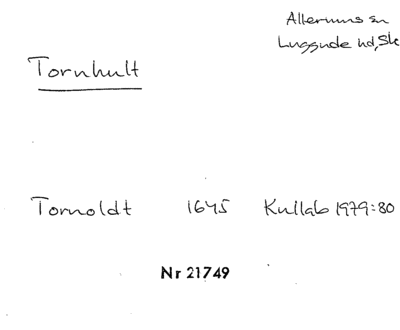 Allerums sn
Luggude hd, Sk
Tornhult
Tornoldt 1645 Kullab 1979:80
Nr 21749